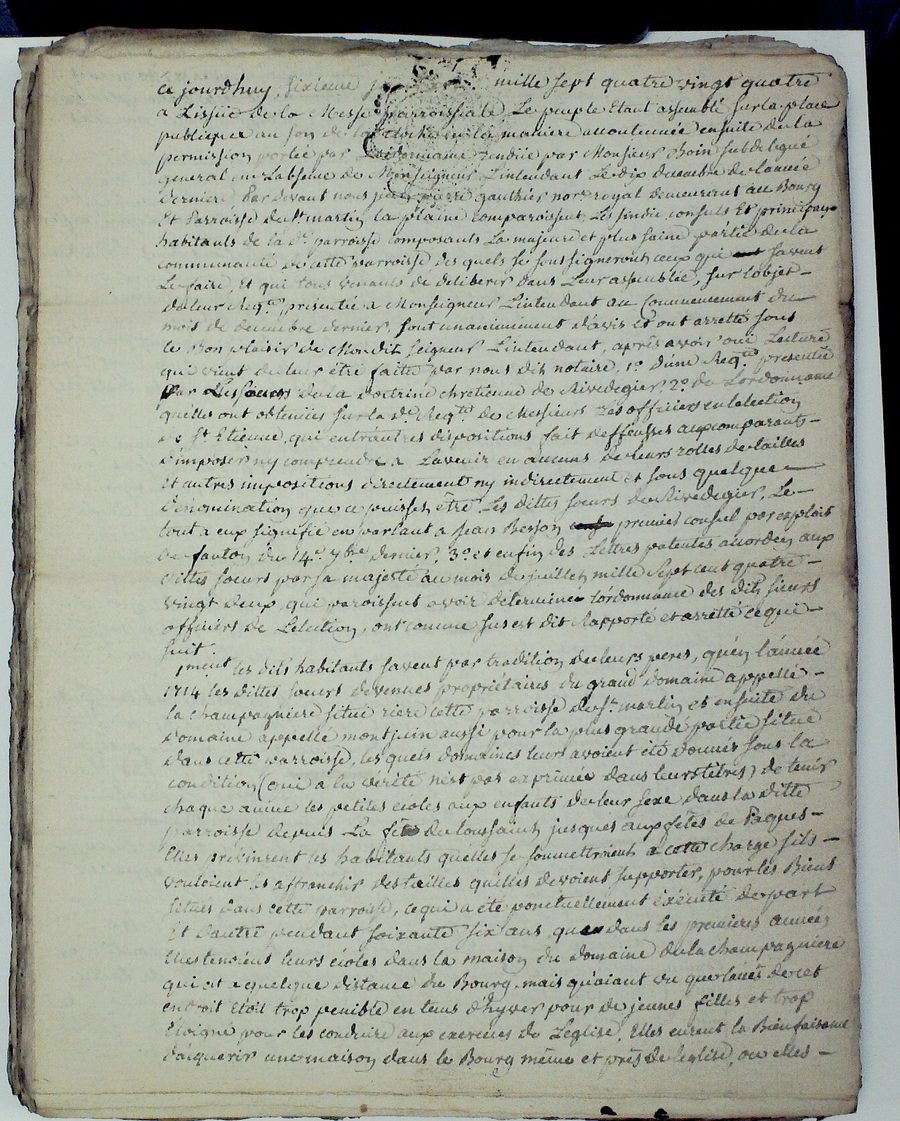 ce jourdhuy sixieme mille sept quatre vingt quatre
a Lissüe de la Messe parroissiale, Le peuple Etant assemblé sur la place
publique au son de la cloche en la maniere accoutumée ensuite de la
permission portée par Lordonnance rendüe par Monsieur Boin subdelegué
general en Labsence de Monseigneur Lintendant Le dix decembre de Lannée
derniere, Par devant nous jean pierre gauthier nore royal demeurant au Bourg
Et Parroisse de st martin la plaine comparoissent Les sindic consuls Et principaux
habitants de la de parroisse composants La majeure et plus saine partie de la
communauté de cette parroisse des quels se sous signeront ceux qui savent
Le faire, Et qui tous venants de deliberer dans Leur assemblée, sur l'objet
de leur Reqte presentée a Monseigneur Lintendant au Commencement du
mois de decembre dernier, sont unanimement d'avis Et ont arretté sous
le Bon plaisir de Mondit seigneur Lintendant, après avoir oui Lecture
qui vient de leur être faitte par nous dit notaire, 1o d'une Reqte presentée
par Les soeurs de la doctrine chretienne de Rivedegier 2o de Lordonnance
quelles ont obtenües sur la de Reqte de Messieurs Les officiers en Lelection
de St Etienne, qui entrautres dispositions fait deffenses aux comparants
d'imposer ny comprendre a Lavenir en aucuns de leurs rolles de tailles
Et autres impositions directement ny indirectement et sous quelque
denomination que ce puissen être, Les dittes soeurs de Rivedegier, Le
tout a eux signifié en parlant a jean Besson premier consul par exploit
de fanton du 14e 7bre dernier, 3o et enfin des Lettres patentes accordées aux
dittes soeurs par sa majesté au mois de juillet mille sept cent quatre
vingt deux, qui paroissent avoir determiné Lordonnance des dits sieurs
officiers de Lelection, ont comme sus est dit Rapporté et arretté ce qui
suit.
1ment les dits habitants savent par tradition de leurs peres, qu'en l'année
1714 les dittes soeurs devenues propriétaires du grand domaine appellé
la champagniere situé riere cette parroisse de st martin et ensuite du
domaine appellé montjuin aussi pour la plus grande partie situé
dans cette parroisse, les quels domaines leurs avoient été donnés sous la
condition (qui a la verité n'est pas exprimée dans leurs titres) de tenir
chaque année les petites ecoles aux enfants de leur sexe dans la ditte
parroisse depuis La fête de toussaint jusques aux fêtes de Paques
Elles previnrent les habitants quelles se soummettroient a cette charge sils
vouloient les affranchir des tailles quelles devoient supporter, pour les Biens
situés dans cette parroisse, ce qui a été ponctuellement éxécuté de part
Et d'autre pendant soixante six ans, que dans les premieres années
Elles tenoient leurs ecoles dans la maison du domaine de la champagniere
qui est a quelque distance du Bourg, mais qu'aiant vu que laués de cet
endroit étoit trop penible en tems d'hyver pour de jeunes filles et trop
Eloigné pour les conduire aux exercices de Leglise, Elles eurent la Bienfaisance
d'acquerir une maison dans le Bourg même et près de leglise, ou elles